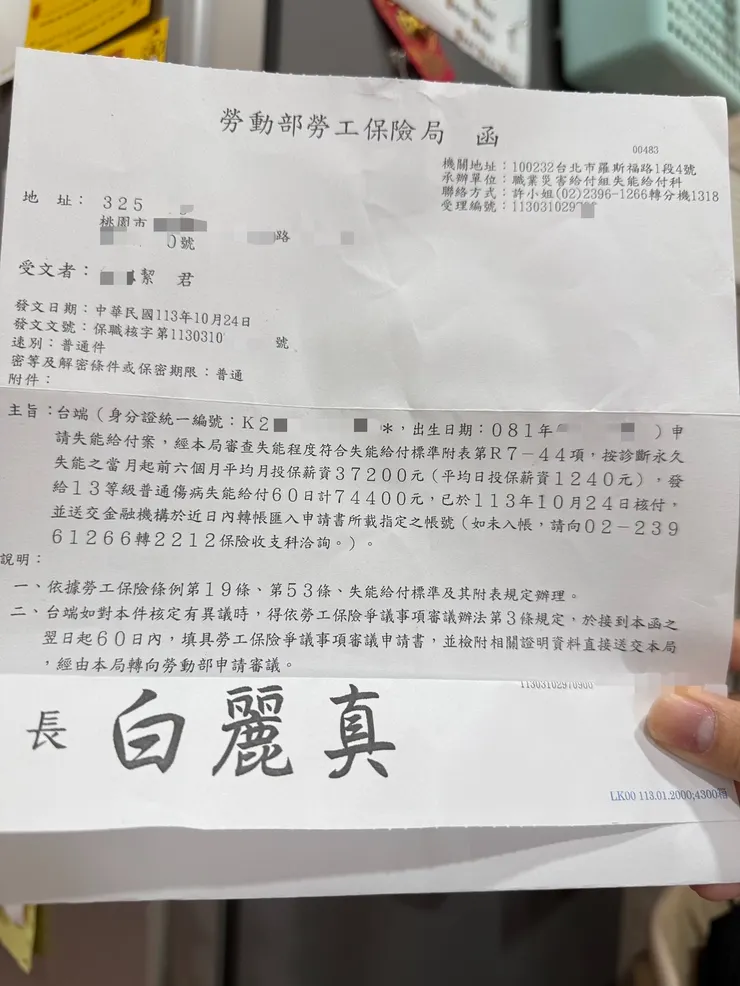 勞動部勞工保險局 函
00483
機關地址：100232台北市羅斯福路1段4號
承辦單位：職業災害給付組失能給付科
聯絡方式：許小姐(02)2396-1266轉分機1318
受理編號：113031029
地 址：325
桃園市
0號 路
受文者： 絜 君
發文日期：中華民國113年10月24日
發文文號：保職核字第1130310 號
速別：普通件
密等及解密條件或保密期限：普通
附件：
主旨：台端（身分證統一編號：K2 *，出生日期：081年 ）申
請失能給付案，經本局審查失能程度符合失能給付標準附表第R7-44項，按診斷永久
失能之當月起前六個月平均月投保薪資37200元（平均日投保薪資1240元），發
給13等級普通傷病失能給付60日計74400元，已於113年10月24日核付，
並送交金融機構於近日內轉帳匯入申請書所載指定之帳號（如未入帳，請向02-239
61266轉2212保險收支科洽詢。）。
說明：
一、依據勞工保險條例第19條、第53條、失能給付標準及其附表規定辦理。
二、台端如對本件核定有異議時，得依勞工保險爭議事項審議辦法第3條規定，於接到本函之
翌日起60日內，填具勞工保險爭議事項審議申請書，並檢附相關證明資料直接送交本局
，經由本局轉向勞動部申請審議。
長 白麗真
LK00 113.01.2000;4300